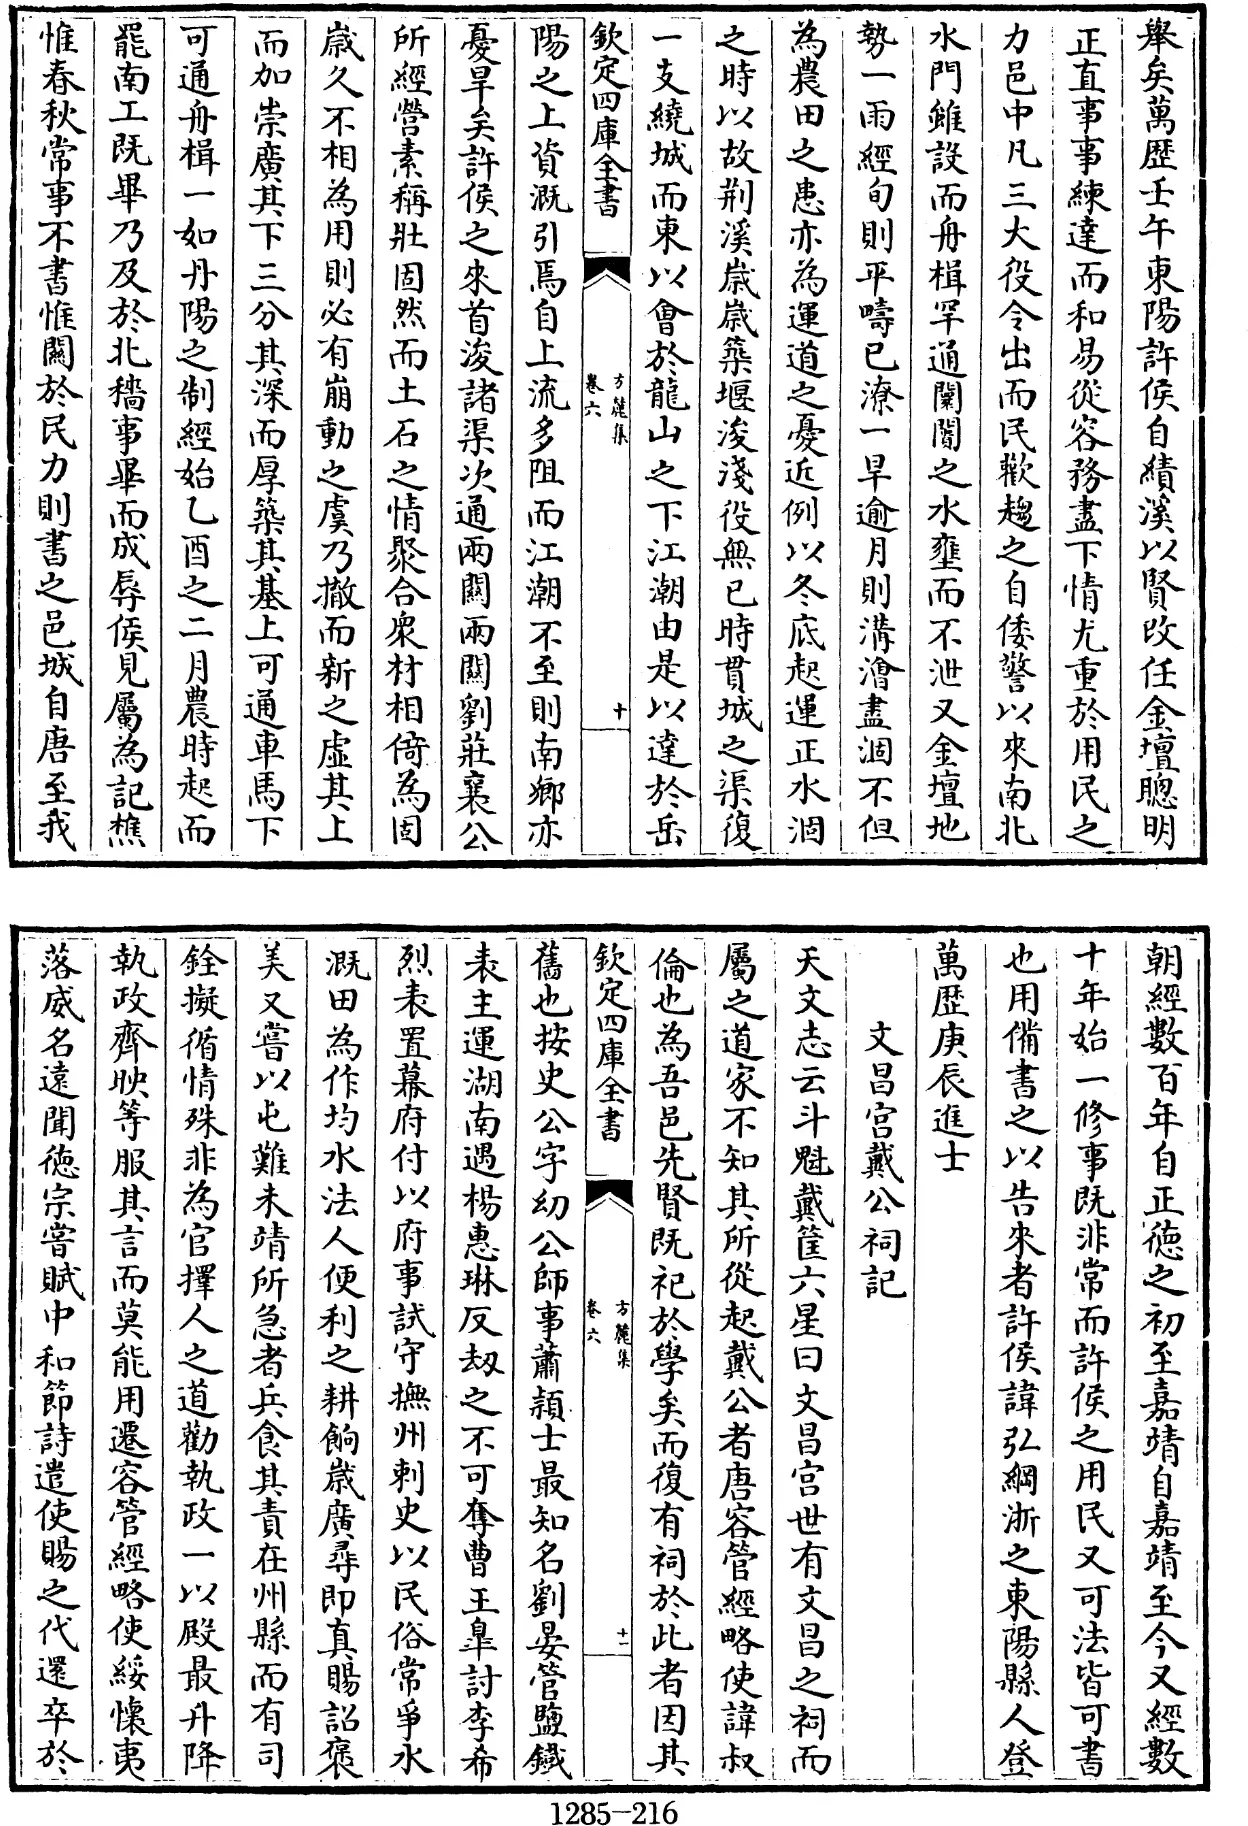 舉矣萬歷壬午東陽許侯自績溪以賢改任金壇聰明
正直事事練達而和易從容務盡下情尤重於用民之
力邑中凡三大役令出而民歡趨之自倭警以來南北
水門雖設而舟楫罕通闤闠之水壅而不泄又金壇地
勢一雨經旬則平疇已潦一旱逾月則溝澮盡涸不但
為農田之患亦為運道之憂近例以冬底起運正水涸
之時以故荆溪嵗嵗築堰浚淺役無已時貫城之渠復
一支繞城而東以會於龍山之下江潮由是以達於岳
欽定四庫全書
方麓集
卷六
十
陽之上資溉引焉自上流多阻而江潮不至則南鄉亦
憂旱矣許侯之來首浚諸渠次通兩關兩關劉莊襄公
所經營素稱壯固然而土石之情聚合衆材相倚為固
嵗久不相為用則必有崩動之虞乃撤而新之虛其上
而加崇廣其下三分其深而厚築其基上可通車馬下
可通舟楫一如丹陽之制經始乙酉之二月農時起而
罷南工既畢乃及於北穡事畢而成辱侯見屬為記樵
惟春秋常事不書惟關於民力則書之邑城自唐至我
朝經數百年自正徳之初至嘉靖自嘉靖至今又經數
十年始一修事既非常而許侯之用民又可法皆可書
也用備書之以告來者許侯諱弘綱浙之東陽縣人登
萬歷庚辰進士
文昌宫戴公祠記
天文志云斗魁戴筐六星曰文昌宫世有文昌之祠而
屬之道家不知其所從起戴公者唐容管經略使諱叔
倫也為吾邑先賢既祀於學矣而復有祠於此者因其
欽定四庫全書
方麓集
卷六
十一
舊也按史公字幼公師事蕭頴士最知名劉晏管鹽鐵
表主運湖南遇楊惠琳反刼之不可奪曹王臯討李希
烈表置幕府付以府事試守撫州刺史以民俗常爭水
溉田為作均水法人便利之耕餉嵗廣尋即真賜詔褒
美又嘗以屯難未靖所急者兵食其責在州縣而有司
銓擬循情殊非為官擇人之道勸執政一以殿最升降
執政齊映等服其言而莫能用遷容管經略使綏懷夷
落威名遠聞徳宗嘗賦中和節詩遣使賜之代還卒於
1285-216